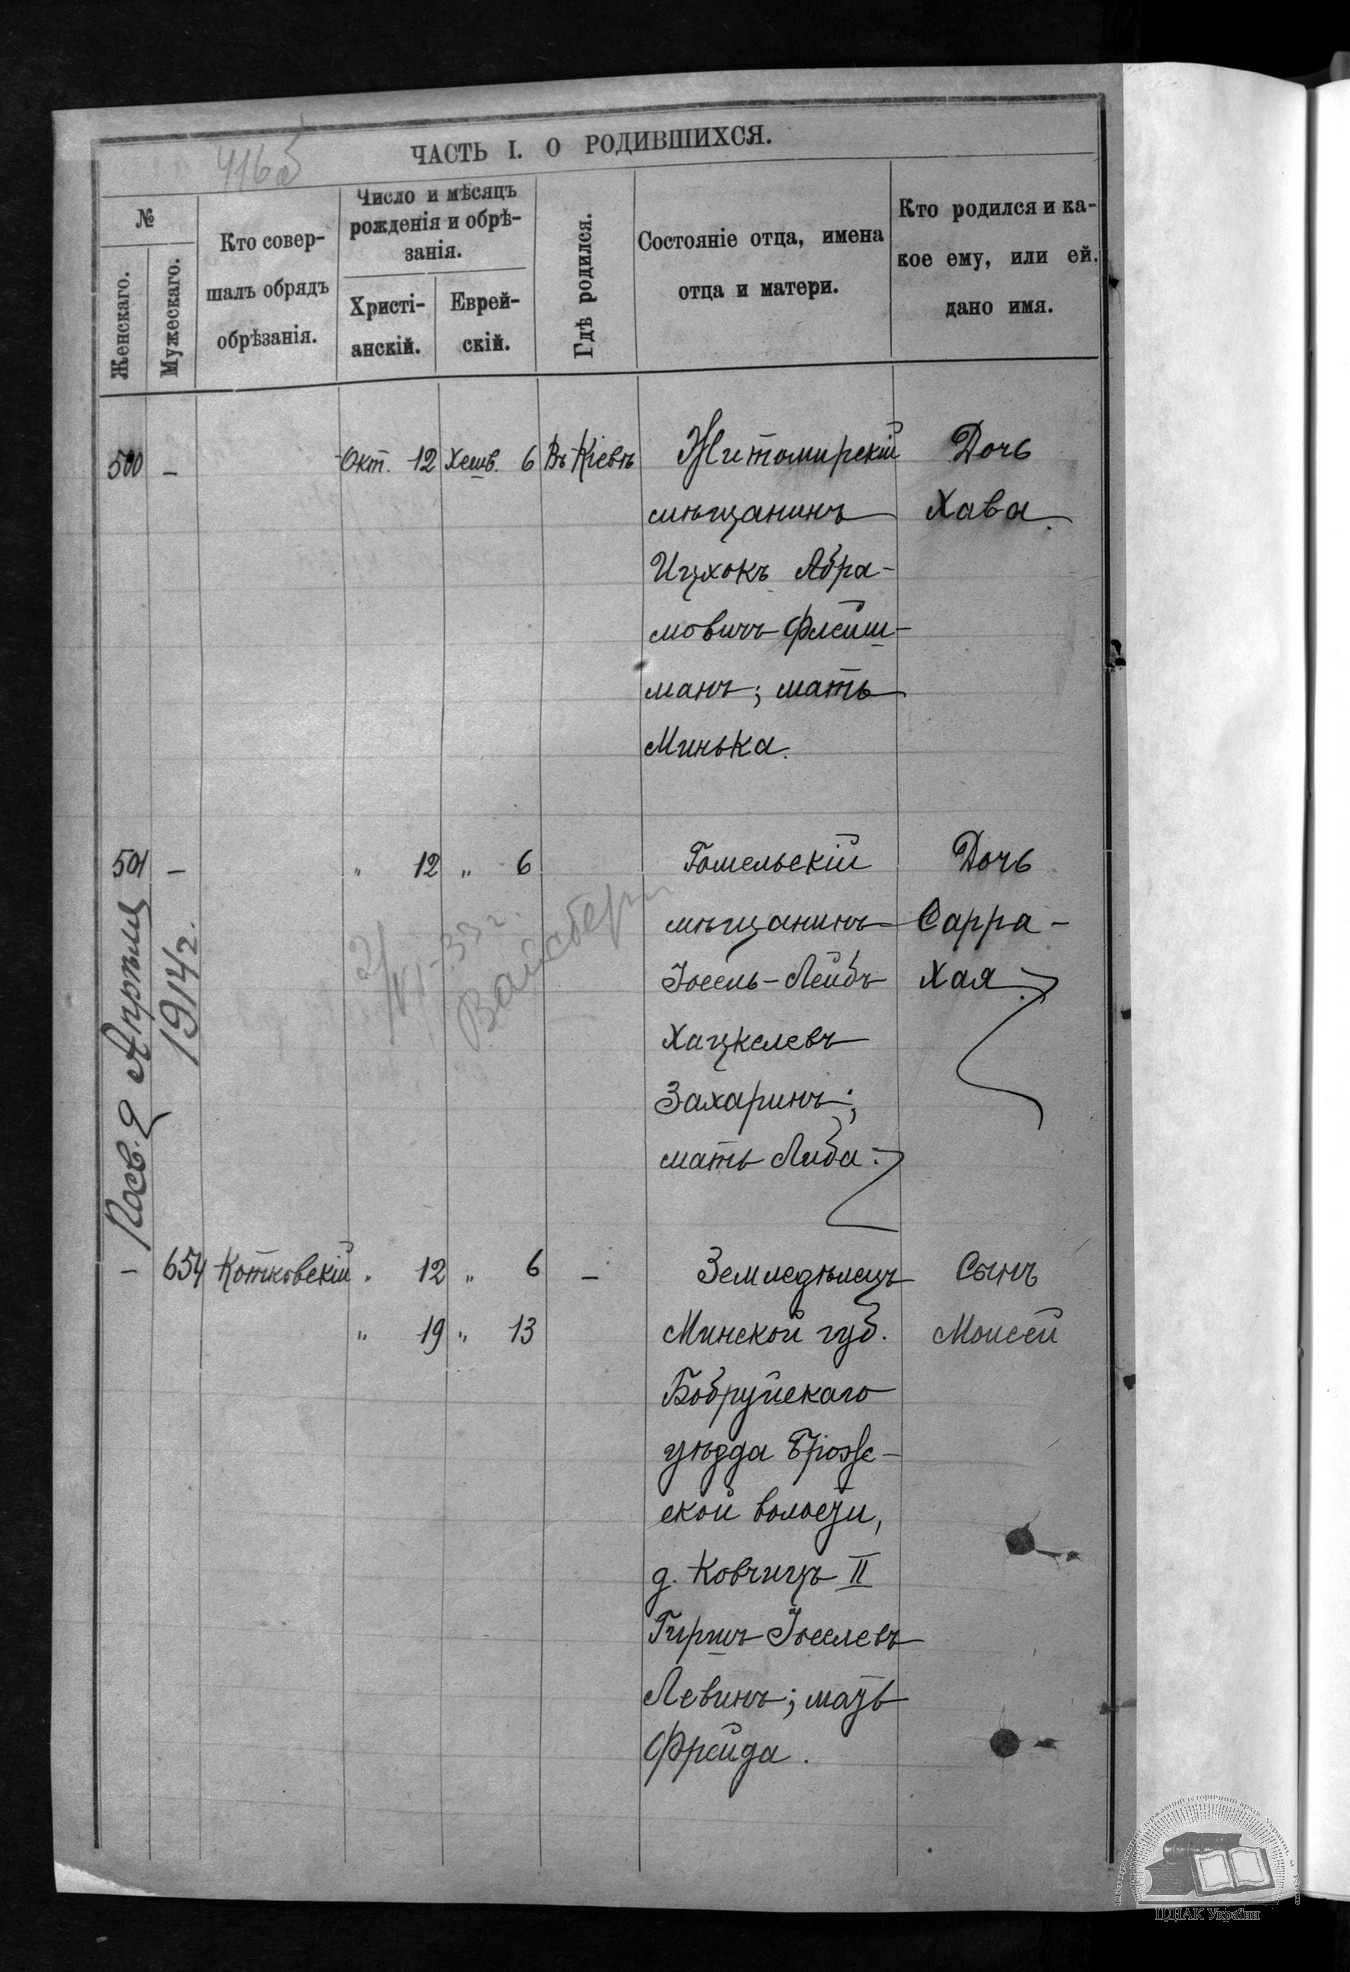 416об
ЧАСТЬ I. О РОДИВШИХСЯ.
№
Женскаго.
Мужескаго.
Кто совер-
шалъ обрядъ
обрѣзанія.
Число и мѣсяцъ
рожденія и обрѣ-
занія.
Христі-
анскій.
Еврей-
скій.
Гдѣ родился.
Состояніе отца, имена
отца и матери.
Кто родился и ка-
кое ему, или ей.
дано имя.
500 – Окт. 12 Хешв. 6 Въ Кіевѣ Житомирскій Дочь
мѣщанинъ Хава.
Ицхокъ Абра-
мовичъ Флейш-
манъ; мать
Минька.
501 – " 12 " 6 Гомельскій Дочь
мѣщанинъ Сарра-
Іосель-Лейбъ Хая
Хацкелевъ
Захаринъ;
мать Либа.
Апрѣля
1914 г.
2/VI-33 г.
Вайсберг
– 654 Котковскій " 12 " 6 – Земледѣлецъ Сынъ
" 19 " 13 Минской губ. Моисей
Бобруйскаго
уѣзда
ской волости,
д. Ковчицъ II
Гиршъ Іоселевъ
Левинъ; мать
Фрейда.
ЦДІАК України